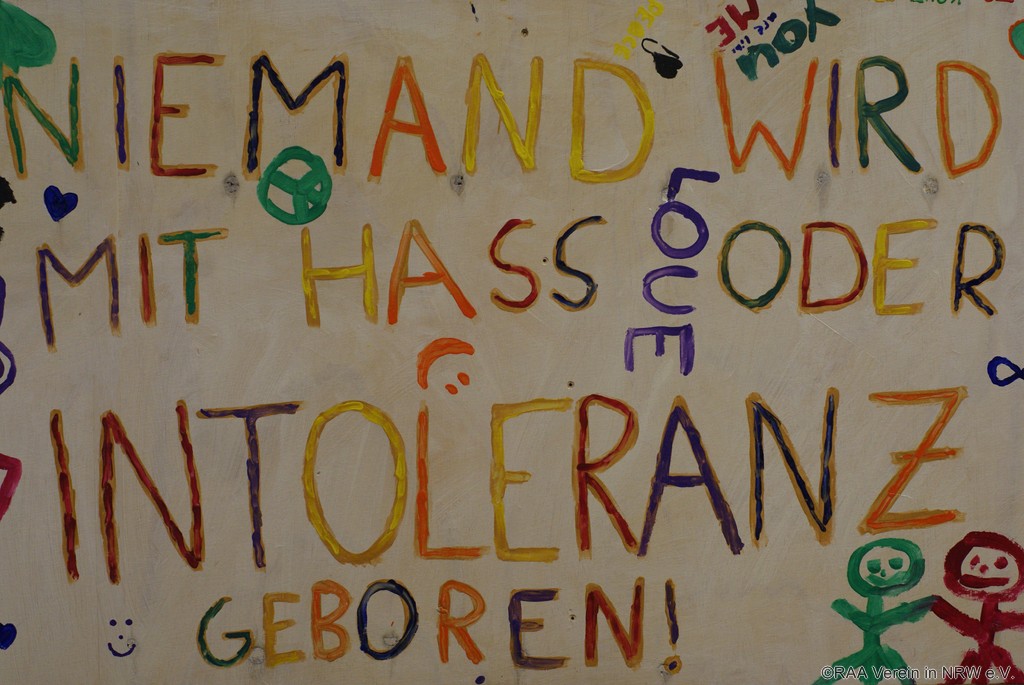 PEACE
YOU are like ME
NIEMAND WIRD
MIT HASS ODER
LOVE
INTOLERANZ
GEBOREN!
©RAA Verein in NRW e.V.